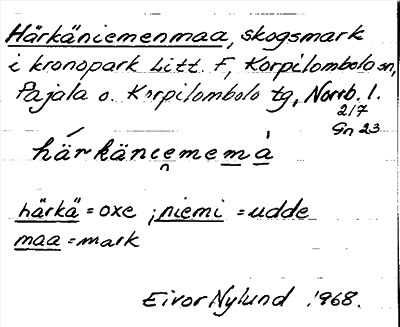 Härkäniemenmaa, skogsmark
i kronopark Litt. F, Korpilombolo sn,
Pajala o. Korpilombolo tg, Norrb. l.
217
Gn 23
härkäniememá
härkä = oxe ; niemi = udde
maa = mark
Eivor Nylund 1968.